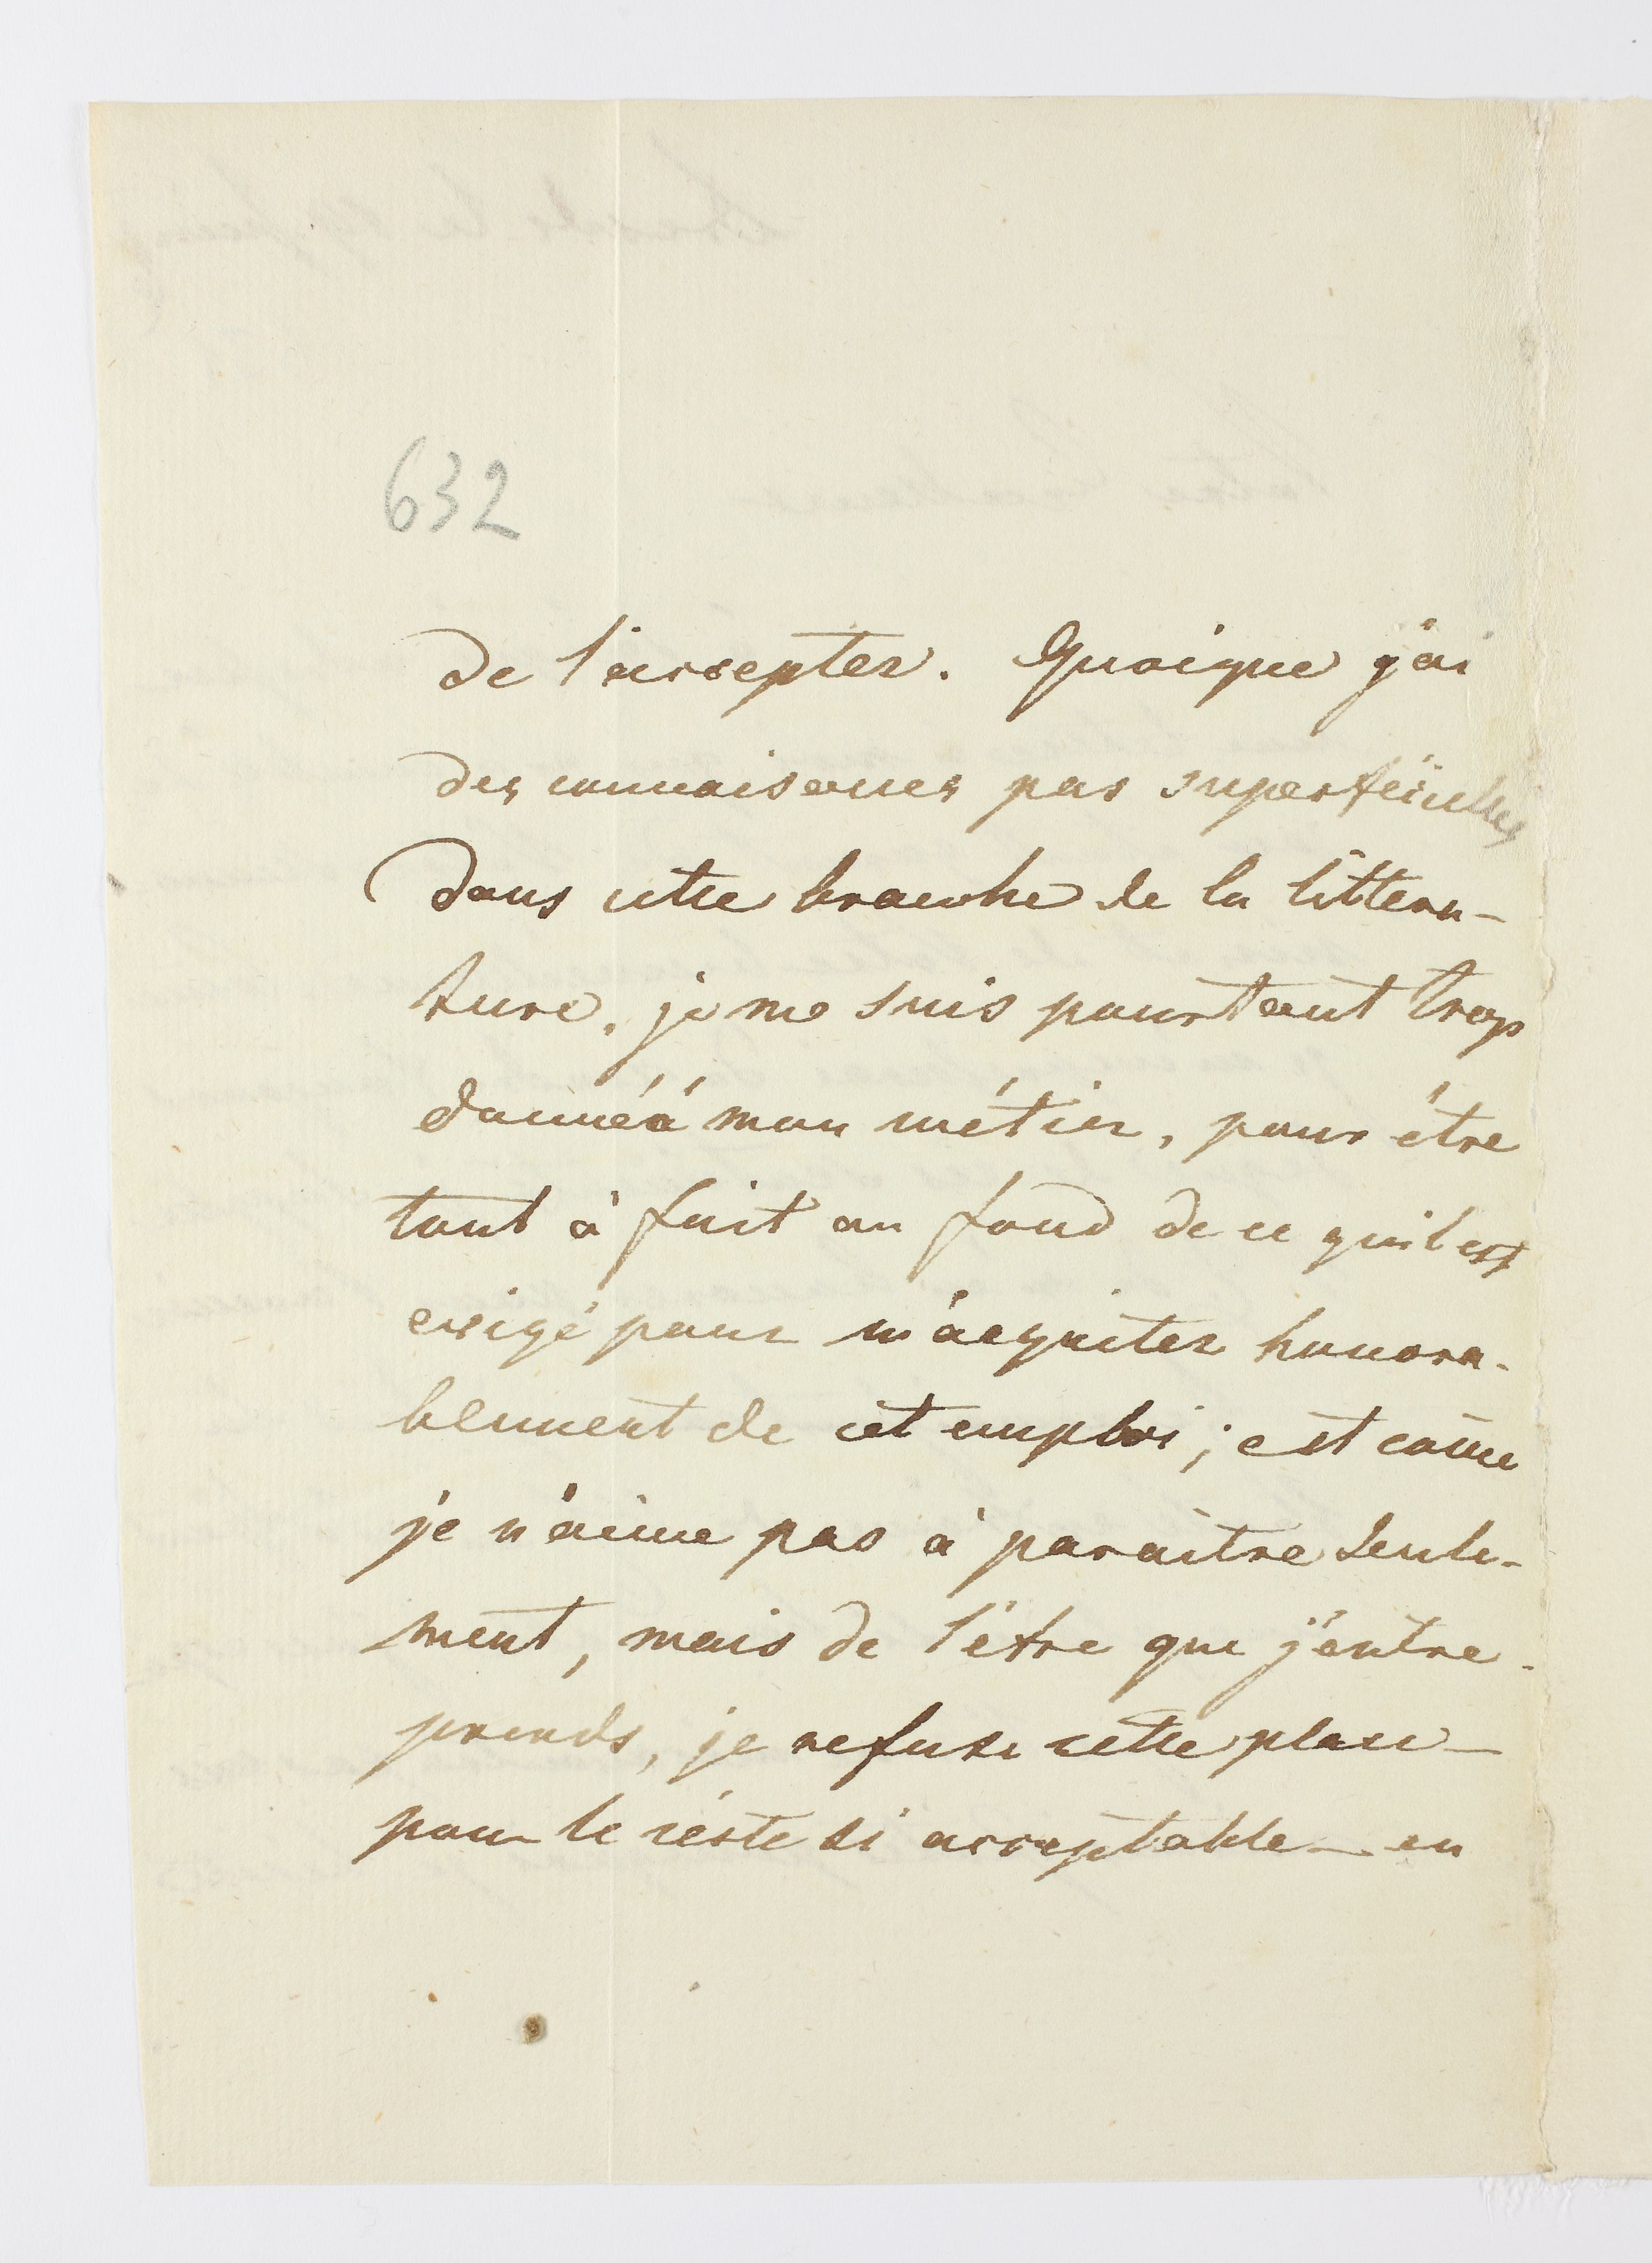 632
de l'accepter. Quoique j'ai
des connaisances pas superfeicielles
dans cette branche de la littera-
ture, je me suis pourtant trop
donné à mon métier, pour être
tout à fait au fond de ce qu'il est
exigé pour m'acquiter honora-
blement de cèt emploi; est come
je n'aime pas à paraître seule-
ment, mais de l'être que j'entre-
prends, je refuse cette place -
pour le réste si acceptable - en